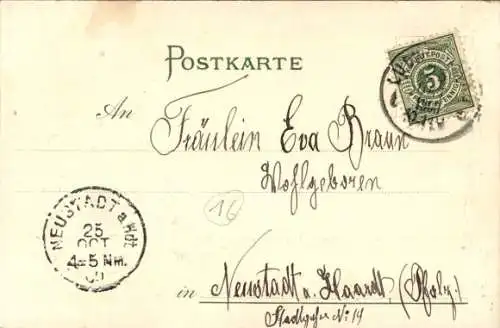 POSTKARTE
5
An Fräulein Eva Braun
Wohlgeboren
16
NEUSTADT a. Hdt.
25
OCT
4-5 Nm.
in Neustadt a. Haardt, (Pfalz)
No 14